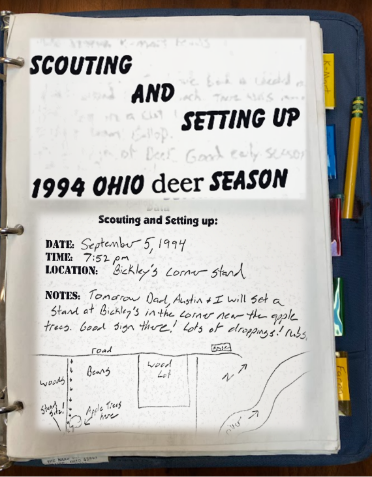 SCOUTING
AND
SETTING UP
1994 OHIO deer SEASON
Scouting and Setting up:
DATE: September 5, 1994
TIME: 7:52 pm
LOCATION: Bickley's corner stand
NOTES: Tomorrow Dad, Austin & I will set a
stand at Bickley's in the corner near the apple
trees. Good sign there! Lots of droppings! rubs.
road
Beans
Wood
Lot
Woods
Stand
Site!
Apple Trees
here
N
K-Mart